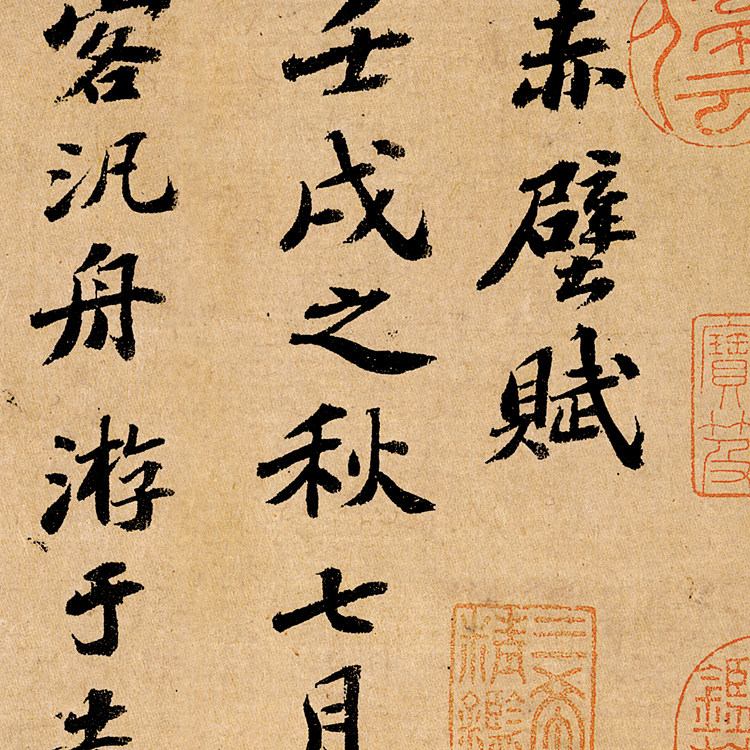 寶笈
赤壁賦
三希
精鑑
壬戌之秋七月
客汎舟游于赤